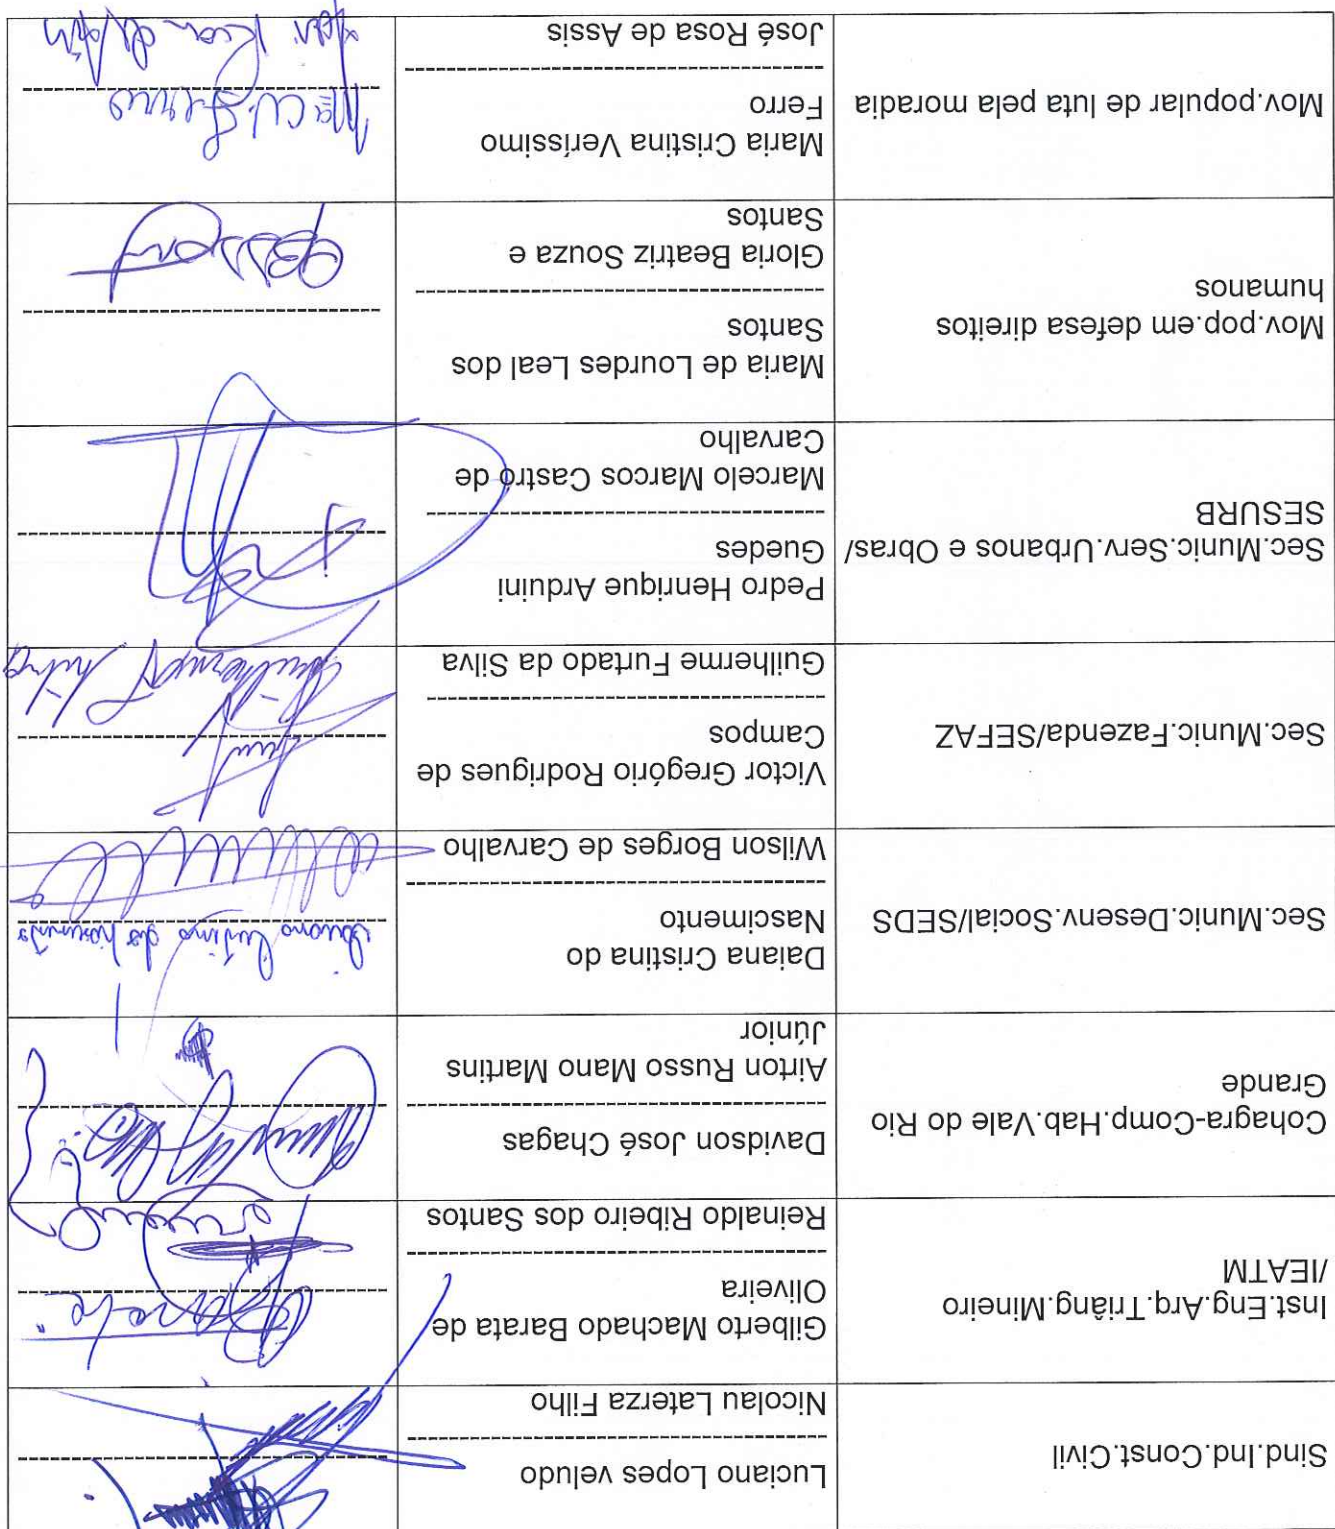 Sind.Ind.Const.Civil
Luciano Lopes veludo
Nicolau Laterza Filho
Inst.Eng.Arq.Triâng.Mineiro
/IEATM
Gilberto Machado Barata de
Oliveira
Reinaldo Ribeiro dos Santos
Cohagra-Comp.Hab.Vale do Rio
Grande
Davidson José Chagas
Airton Russo Mano Martins
Júnior
Sec.Munic.Desenv.Social/SEDS
Daiana Cristina do
Nascimento
Daiana Cristina do Nascimento
Wilson Borges de Carvalho
Sec.Munic.Fazenda/SEFAZ
Victor Gregório Rodrigues de
Campos
Guilherme Furtado da Silva
Guilherme F Silva
Sec.Munic.Serv.Urbanos e Obras/
SESURB
Pedro Henrique Arduini
Guedes
Marcelo Marcos Castro de
Carvalho
Mov.pop.em defesa direitos
humanos
Maria de Lourdes Leal dos
Santos
Gloria Beatriz Souza e
Santos
Mov.popular de luta pela moradia
Maria Cristina Veríssimo
Ferro
Mª C.V. Ferro
José Rosa de Assis
José Rosa de Assis